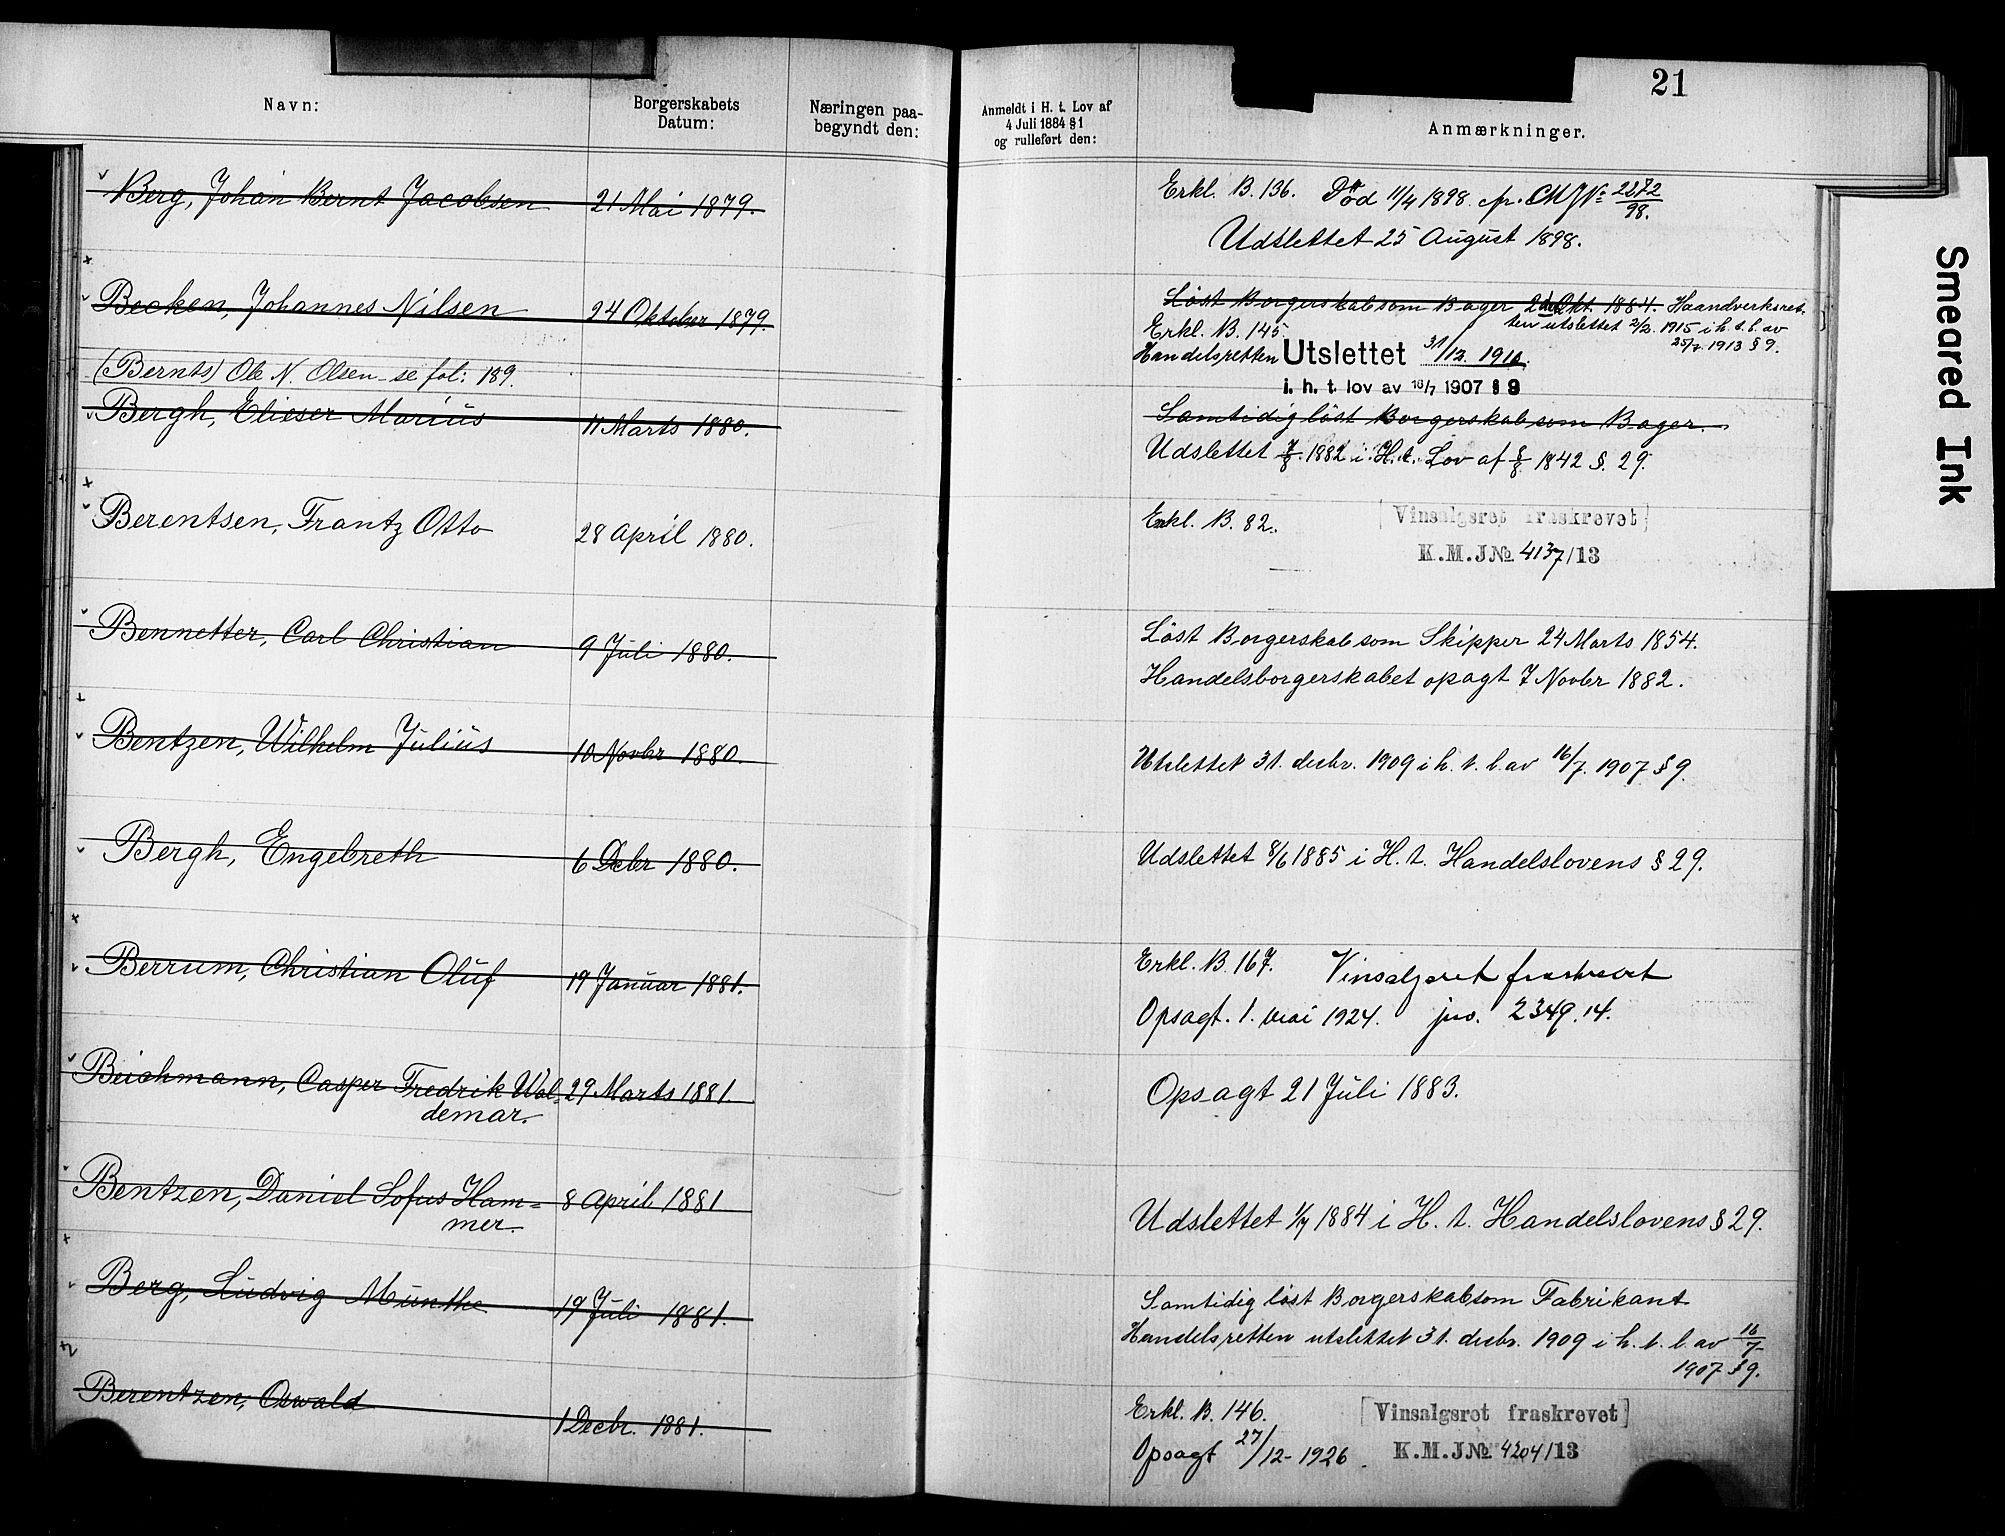 21
Navn:
Borgerskabets Datum:
Næringen paa-begyndt den:
Anmeldt i H. t. Lov af 4 Juli 1884 § 1 og rulleført den:
Anmærkninger.
Berg, Johan Bernt Jacobsen 21 Mai 1879. Erkl. B. 136. Död 11/4 1898 fr. CMJN° 2272/98.
Udslettet 25 August 1898.
Becken, Johannes Nilsen 24 Oktober 1879. Løst Borgerskab som Bager 24 Okt. 1884. Haandverksret-
ten utslettet 2/2. 1915 i h. t. l. av
Erkl. B. 145. 25/7. 1913 § 9.
Handelsretten Utslettet 31/12. 1910.
i. h. t. lov av 16/7 1907 § 9
(Bernts) Ole N. Olsen - se fol: 189.
Bergh, Elieser Marius 11 Marts 1880. Samtidig løst Borgerskab som Bager.
Udslettet 7/8. 1882 i H. t. Lov af 8/8 1842 §. 29.
Berentsen, Frantz Otto 28 April 1880. Erkl. B. 82. [Vinsalgsret fraskrevet]
K.M.J№ 4137/13
Bennetter, Carl Christian 9 Juli 1880. Løst Borgerskab som Skipper 24 Marts 1854.
Handelsborgerskabet opsagt 7 Novbr 1882.
Bentzen, Wilhelm Julius 10 Novbr 1880. Utslettet 31. desbr. 1909 i h. t. l. av 16/7. 1907 § 9.
Bergh, Engebreth 6 Decbr 1880. Udslettet 8/6 1885 i H. t. Handelslovens § 29.
Berrum, Christian Oluf 19 Januar 1881. Erkl. B. 167. Vinsalgsret fraskrevet
Opsagt. 1. mai 1924. jno. 2349.14.
Beichmann, Casper Fredrik Wal- 29 Marts 1881. Opsagt 21 Juli 1883.
demar.
Bentzen, Daniel Sofus Ham= 8 April 1881 Udslettet 1/7 1884 i H. t. Handelslovens § 29.
mer.
Berg, Ludvig Munthe 19 Juli 1881. Samtidig løst Borgerskab som Fabrikant
Handelsretten utslettet 31. desbr. 1909 i h. t. l. av 16/7
1907 § 9.
Berentzen, Oswald 1 Decbr. 1881. Erkl. B. 146. [Vinsalgsret fraskrevet]
Opsagt 27/12- 1926. K.M.J№ 4204/13
Smeared Ink